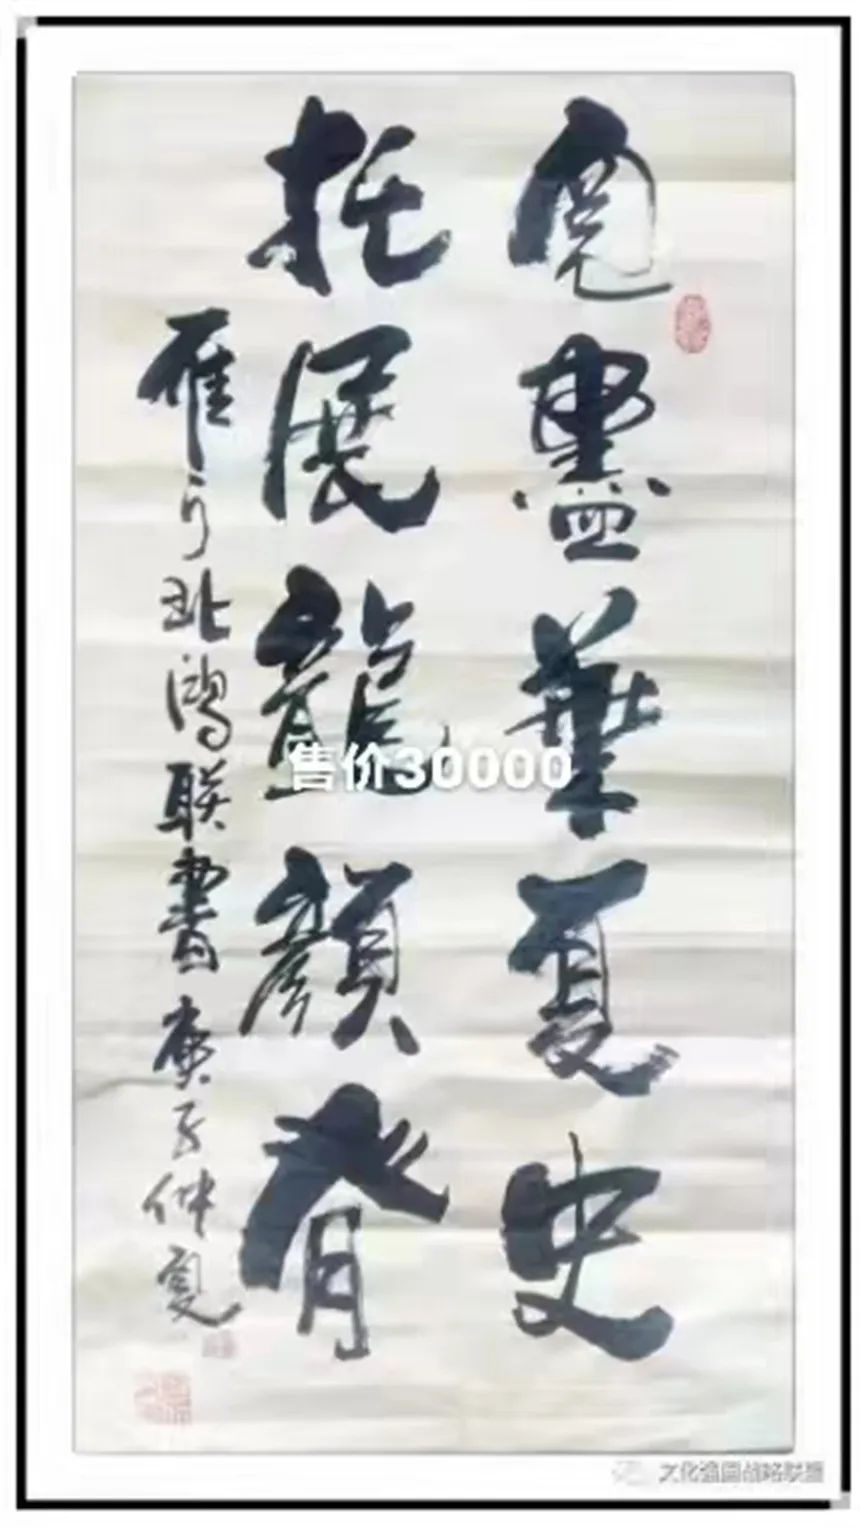 盡華夏史
托展龍顏脊
雁行北鴻联書庚子仲夏
售价30000
文化强国战略联盟